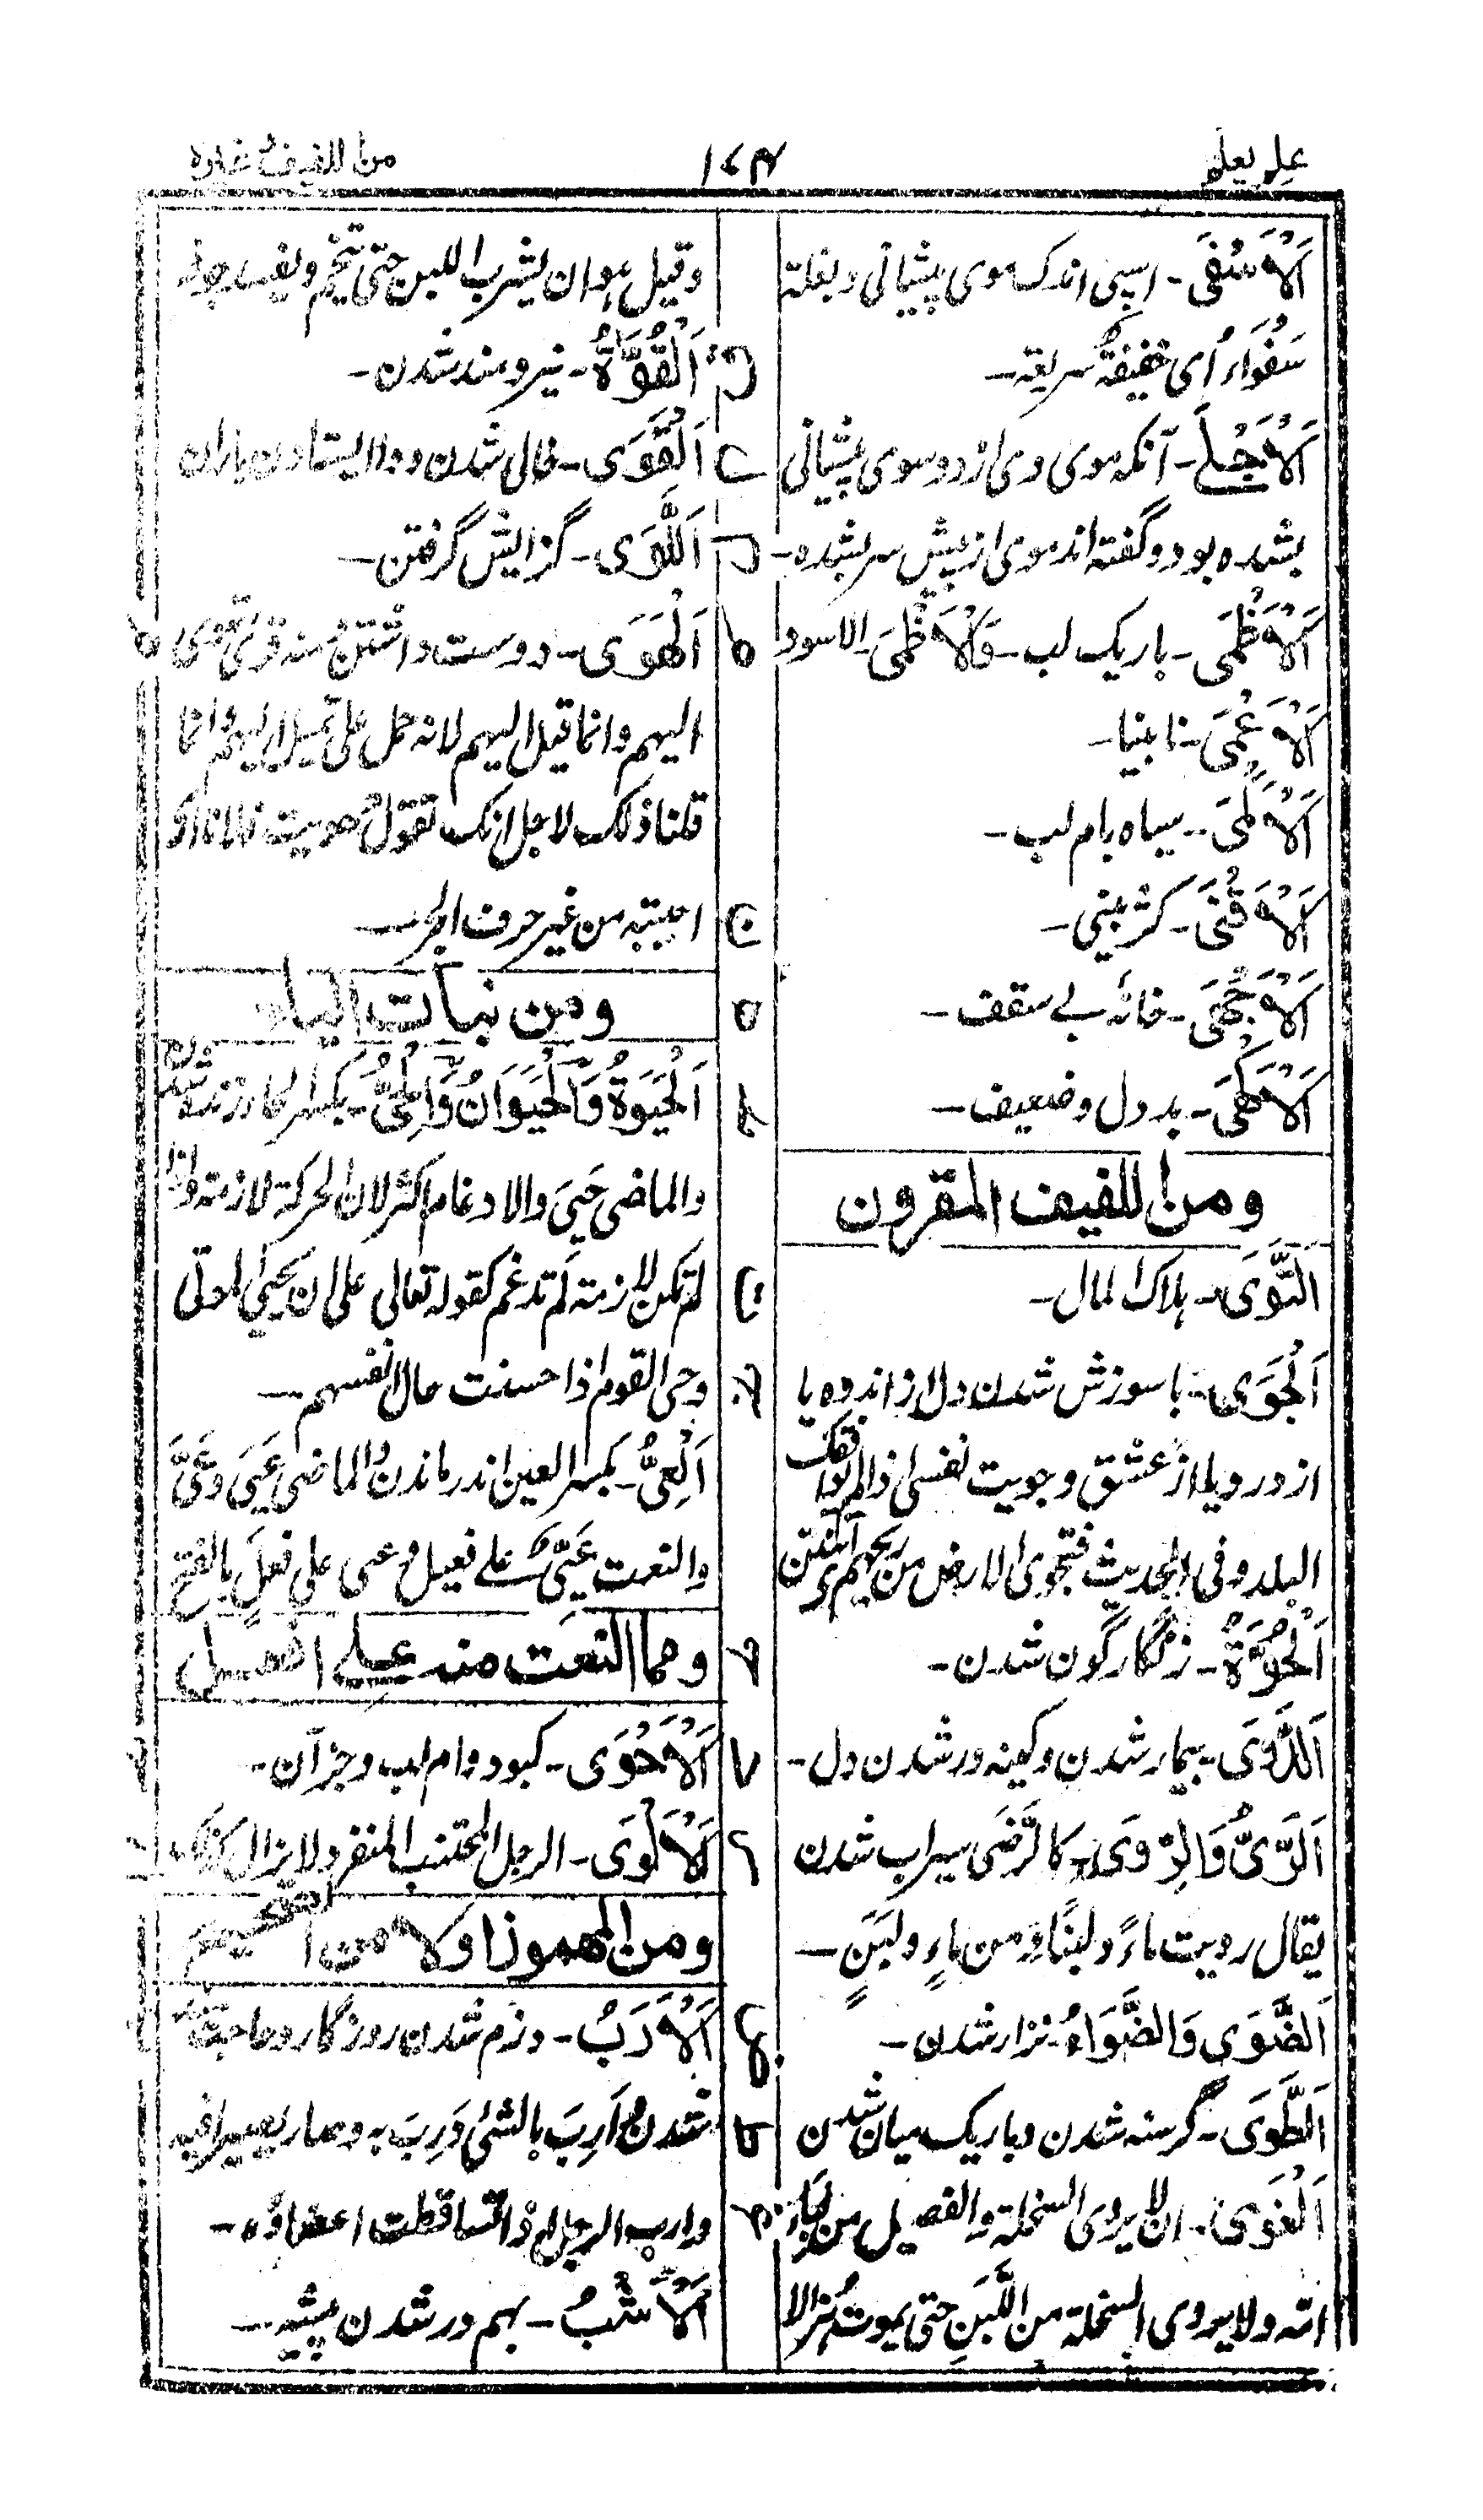 علم يعلم
١٧٣
من اللفيف وغيره
اَلْاَسْفَى - اسپی اندک موی پیشانی و بغلة
سَفْوَاء أی خفیفة سریعة -
اَلْاَجْلَى - آنکه موی وی از دو سوی پیشانی
بشده بود و گفته اند موی از پیش سر بشده -
اَلْاَظْمَى - باریک لب - وَالْاَظْمَى الاسود
اَلْاَعْمَى - نابینا -
اَلْاَلْمَى - سیاه بام لب -
اَلْاَقْنَى - کژ بینی -
اَلْاَجْهَى - خانه بے سقف -
اَلْاَكْهَى - بددل وضعیف -
ومن اللفيف المقرون
اَلتَّوَى - ہلاک المال -
اَلْجَوَى - با سوزش شدن دل از اندوہ یا
از درد و یا از عشق و جویت نفسی اذا لم یوافقک
البلد و فی الحدیث فتجوی الارض من ریحہم ای تنتن
اَلْحُوَّةُ - زنگارگون شدن -
اَلدَّوَى - بیمار شدن و کینه ور شدن دل -
اَلرَّىُّ وَالرِّوَى کالرِّضَى سیراب شدن
یقال رویت ماءً ولبنًا ومن ماءٍ ولبَنٍ -
اَلضَّوَى وَالضَّوَاءُ نزار شدن -
اَلطَّوَى - گرسنه شدن و باریک میان شدن
اَلْغَوَى - ان لا یروی السخلة والفصیل من لبأ
امّه ولا یروی السخلة من اللَّبَنِ حتی یموت ہزالا
وقیل ہو ان یشرب اللبن حتی یتخم ویفسد جوفہ
ق اَلْقُوَّةُ - نیرومند شدن -
اَلْقَوَى - خالی شدن و وا ایستادن باران
ل اَللَّوَى - گزایش گرفتن -
ه اَلْهَوَى - دوست داشتن و منه قری تہوی
الیہم وانما قیل الیہم لانہ حمل علی تمیل الیہم وانما
قلنا ذلک لاجل انک تقول ھویت فلانا ای
احببتہ من غیر حرف الجر -
ومن نبات الياء
اَلْحَيٰوةُ وَالْحَيَوَانُ وَالْحِىُّ - بکسر الحاء زنده شدن
والماضی حَیِیَ والادغام اکثر لان الحرکة لازمة واذا
لم تکن لازمة لم تدغم کقوله تعالی علی ان یحیی الموتی
وحی القوم اذا حسنت حال انفسہم -
اَلْعِىُّ - بکسر العین اندر ماندن والماضی عَیِیَ وَعَیَّ
والنعت عَیِیٌّ علے فعیل و عی علی فعلٍ بالفتح
ومما النعت منه على افعل
اَلْاَحْوَى - کبود وام لب و جز آن -
اَلْاَلْوَى - الرجل المجتنب المنفرد لا یزال کذلک
ومن المهموز اولا من الصحيح
اَلْاَرَبُ - دژم شدن روزگار و حاجتمند
شدن و اَرِبَ بالشئ دَرِبَ به و صار بصیرا فیه
وارب الرجل اذا تساقطت اعضاؤه -
اَلْاَشَبُ - بہم در شدن بیشه -